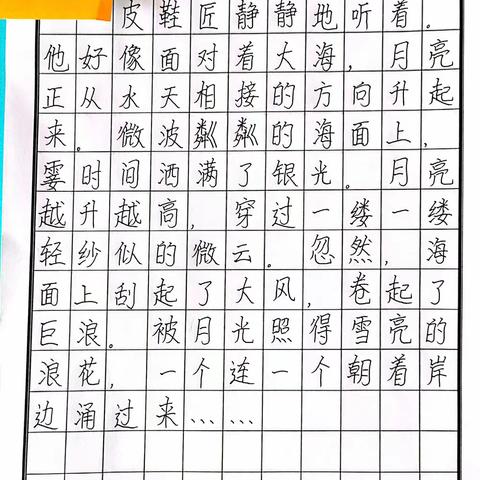 皮鞋匠静静地听着.
他好像面对着大海,月亮
正从水天相接的方向升起
来。微波粼粼的海面上,
霎时间洒满了银光。月亮
越升越高,穿过一缕一缕
轻纱似的微云。忽然,海
面上刮起了大风,卷起了
巨浪。被月光照得雪亮的
浪花,一个连一个朝着岸
边涌过来……